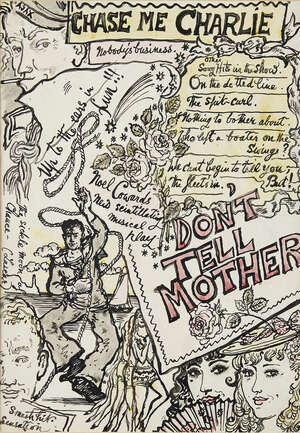 CHASE ME CHARLIE
Nobody's business.
Up to the ears in
fun!!!
Other
Song Hits in the Show.
On the dotted line.
The Spit-curl.
Nothing to bother about.
Who left a boater on the
Swings?
We can't begin to tell you,
the rest is.
But!
Noel Coward's
New
musical
play
DON'T
TELL
MOTHER
the whole room
Smash hit
sensation